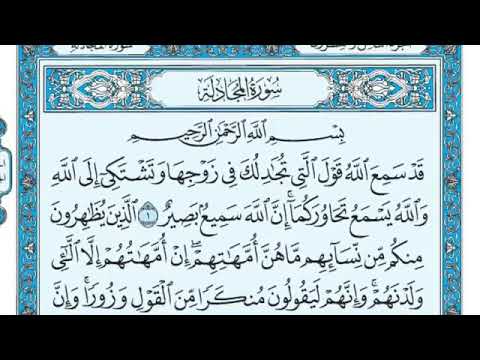 سُورَةُ المُجَادلَةِ
سُورَةُ المُجَادلَةِ
بِسْمِ اللَّهِ الرَّحْمَٰنِ الرَّحِيمِ
قَدْ سَمِعَ اللَّهُ قَوْلَ الَّتِي تُجَادِلُكَ فِي زَوْجِهَا وَتَشْتَكِي إِلَى اللَّهِ
وَاللَّهُ يَسْمَعُ تَحَاوُرَكُمَا إِنَّ اللَّهَ سَمِيعٌ بَصِيرٌ ١ الَّذِينَ يُظَاهِرُونَ
مِنكُم مِّن نِّسَائِهِم مَّا هُنَّ أُمَّهَاتِهِمْ إِنْ أُمَّهَاتُهُمْ إِلَّا اللَّائِي
وَلَدْنَهُمْ وَإِنَّهُمْ لَيَقُولُونَ مُنكَرًا مِّنَ الْقَوْلِ وَزُورًا وَإِنَّ